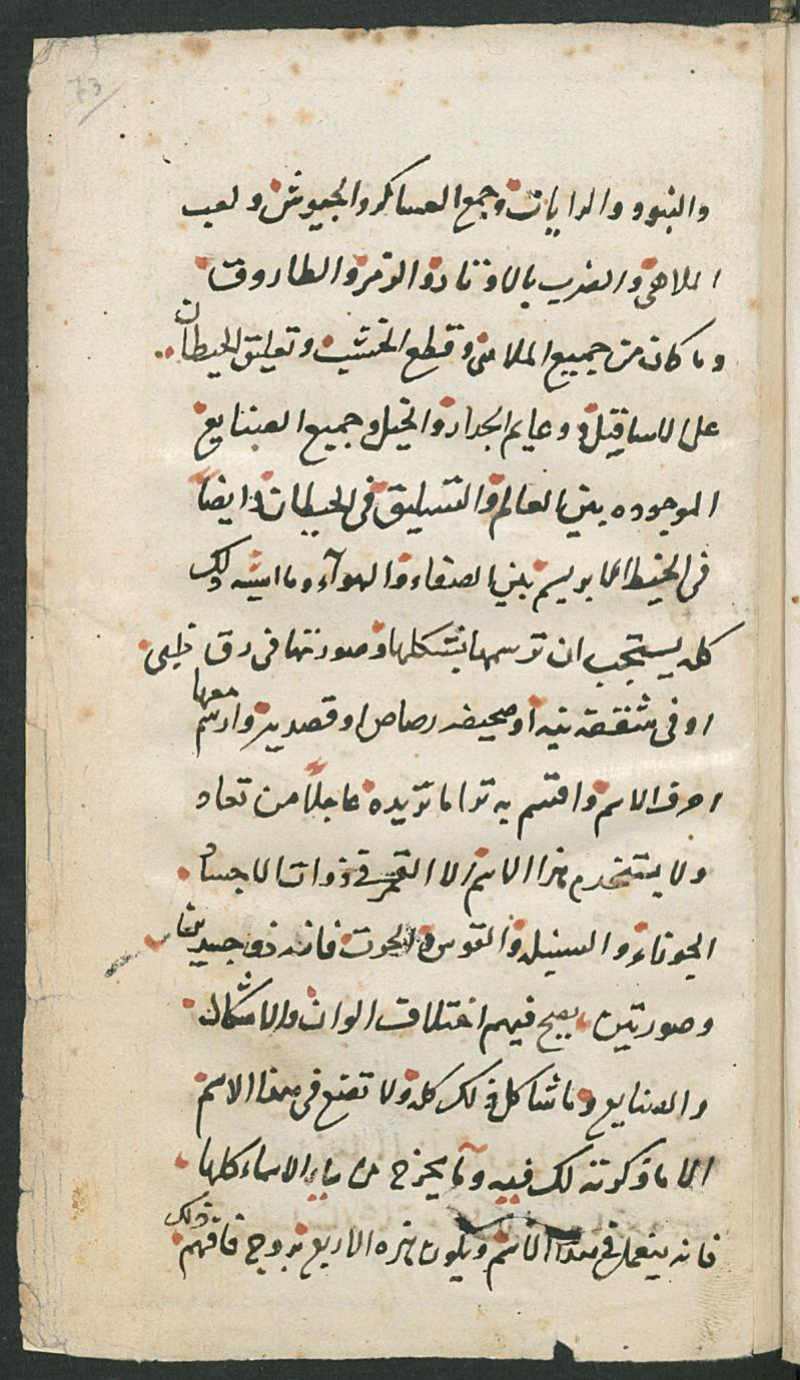 73
والبنود والرايات وجمع العساكر والجيوش ولعب
الملاهى والضرب بالاوتاد والزمر والطاروق
وما كان من جميع الملاهى وقطع الخشب وتعليق الحيطان
على الاساقيل وعايم الجدار والخيل وجميع الصنايع
الموجوده بين العالم والتسليق فى الحيطان وايضاً
فى الخيط الابريسم بين الصفاء والهوآء وما اشبه ذلك
كله يستجب ان ترسمها بشكلها وصورتها فى رق ظبى
او فى شقفة نيه او صحيفه رصاص او قصدير وارسم معها
احرف الاسم واقسم به ترا ما تريده عاجلاً من تعاد
ولا يستخدم هذا الاسم الا القمر فى ذوات الاجساد
الجوزاء والسنبله والقوس والحوت فانه ذو جسدين
وصورتين يصح فيهم اختلاف الوان والاشكال
والصنايع وما شاكل ذلك كله ولا تصنع فى هذا الاسم
الا ما ذكرته لك فيه وما يخرج من باب الاسماء كلها
فانه ينعمل فى هذا الاسم ويكون هذه الاربع بروج فافهم ذلك